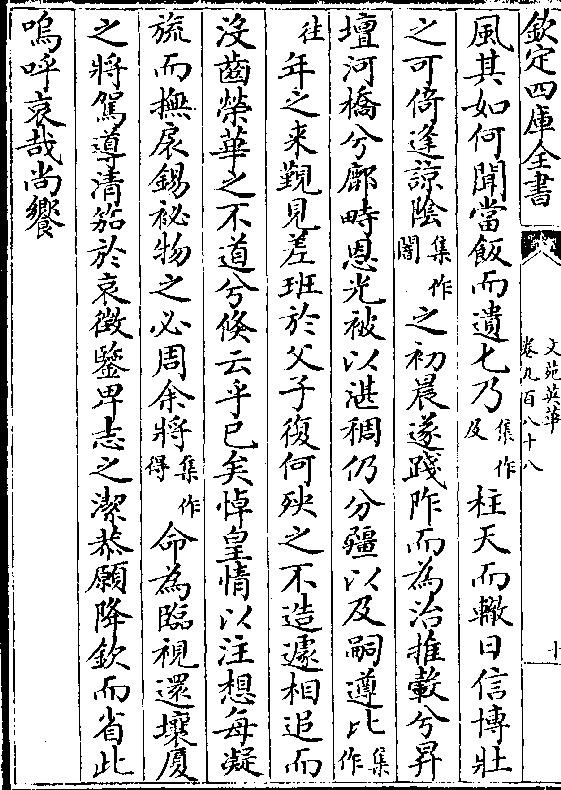 欽定四庫全書
文苑英華
卷九百八十八
十
風其如何聞當飯而遺七乃集作及柱天而轍日信博壯
之可倚逢諒陰集作闇之初晨遂踐阼而為治推轂兮昇
壇河橋兮鄜畤恩光被以湛稠仍分疆以及嗣遵比集作
往年之来覲見差班於父子復何殃之不造遽相追而
沒齒榮華之不道兮倐云乎已矣悼皇情以注想每凝
旒而撫扆錫祕物之必周余將集作得命為臨視還壤厦
之將駕導清笳於哀徵鑒毕志之潔恭願降欽而省此
嗚呼哀哉尚饗